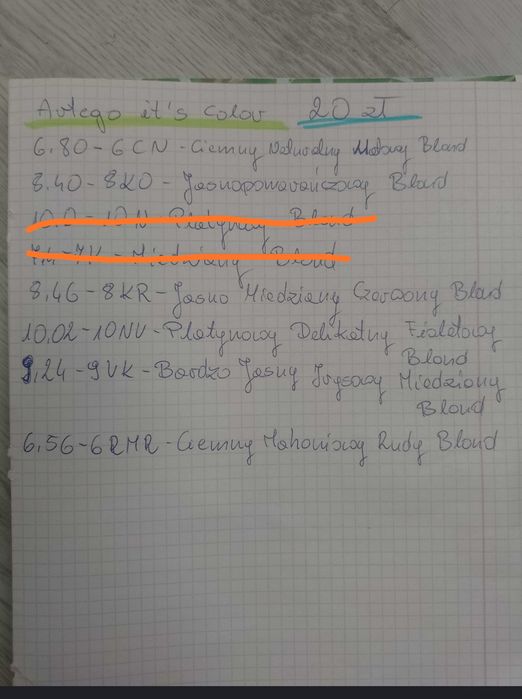 Artego it's color 20 zł
6.80 - 6CN - Ciemny Naturalny Matowy Blond
8.40 - 8KO - Jasnopomarańczowy Blond
10.0 - 10N - Platynowy Blond
7.4 - 7K - Miedziany Blond
8.46 - 8KR - Jasno Miedziany Czerwony Blond
10.02 - 10NV - Platynowy Delikatny Fioletowy
Blond
9.24 - 9VK - Bardzo Jasny Irysowy Miedziany
Blond
6.56 - 6RMR - Ciemny Mahoniowy Rudy Blond